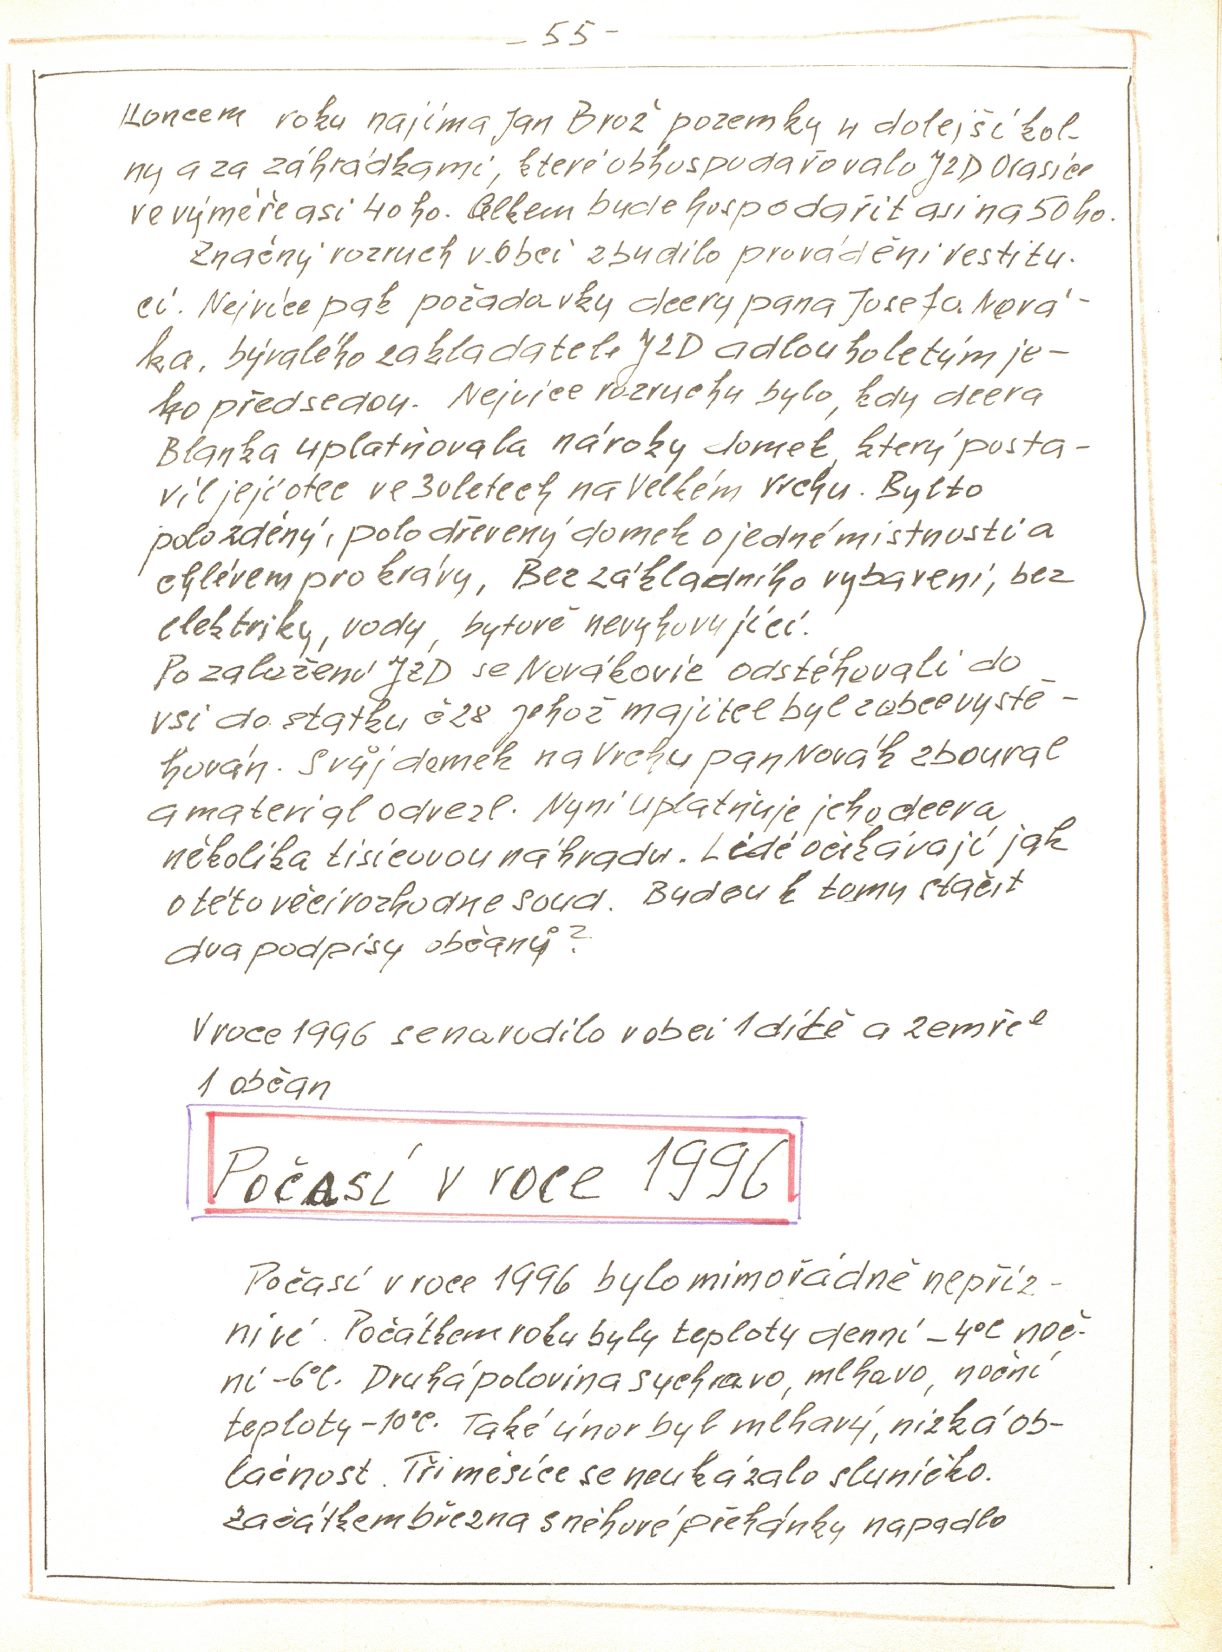 - 55 -
Koncem roku najíma Jan Brož pozemky u dolejší kol-
ny a za záhrádkami, které obhospodařovalo JZD Ocasice
ve výměře asi 40 ho. Celkem bude hospodařit asi na 50 ho.
Značný rozruch v Obci zbudilo prováděni restitu-
cí. Nejvíce pak požadavky dcery pana Josefa Nová-
ka, bývalého zakladatele JZD a dlouholetým je-
ho předsedou. Nejvíce rozruchu bylo, kdy dcera
Blanka uplatňovala nároky domek, který posta-
vil její otec ve 30letech na Velkém vrchu. Bylto
polozděný, polodřevený domek o jedné mistnosti a
chlévem pro krávy, Bez základního vybavení, bez
elektriky, vody, bytově nevyhovující.
Po založení JZD se Novákovic odstěhovali do
vsi do statku č 28 jehož majitel byl z obce vystě-
hován. Svůj domek na Vrchu pan Novák zboural
a material odvezl. Nyni uplatňuje jeho dcera
několika tisícovou náhradu. Lidé očekávají jak
o této věci rozhodne soud. Budou k tomu stačit
dva podpisy občanů?
V roce 1996 se narodilo v obci 1 dítě a zemřel
1 občan
Počasí v roce 1996
Počasí v roce 1996 bylo mimořádně nepříz-
nivé. Počátkem roku byly teploty denní -4°C noč-
ní -6°C. Druhá polovina sychravo, mlhavo, noční
teploty -10°C. Také únor byl mlhavý, nizká ob-
lačnost. Tři měsíce se neukázalo sluníčko.
Začátkem března sněhové přehánky napadlo